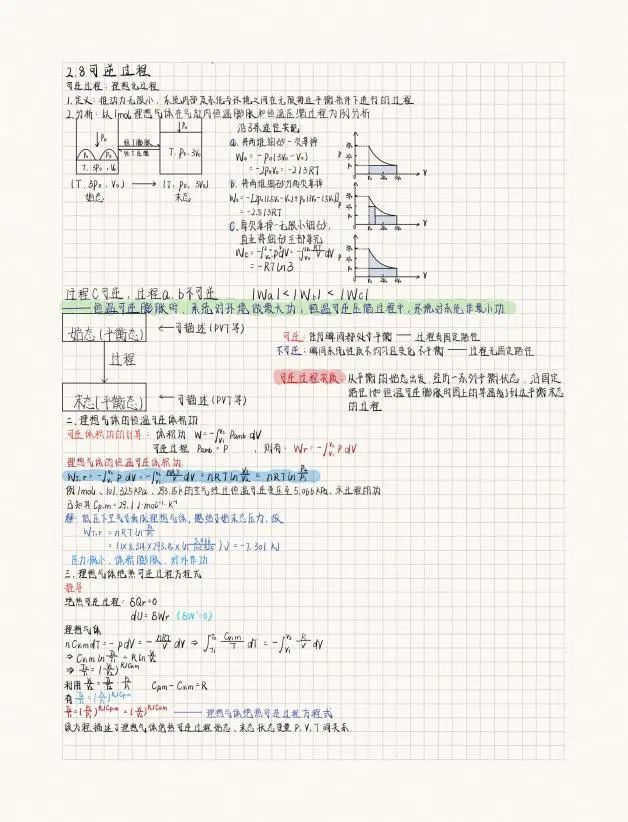 2.8 可逆过程
可逆过程：理想化过程
1.定义：推动力无限小，系统内部及系统与环境之间在无限接近平衡条件下进行的过程
2.分析：以1mol理想气体在气缸内恒温膨胀和恒温压缩过程为例分析
沿3条途径实现
a. 将两堆细砂一次拿掉
Wa = -p₀(3V₀-V₀)
= -2p₀V₀ = -2/3RT
b. 将两堆细砂分两次拿掉
= -2.5/3RT
c. 每次拿掉一无限小细砂，
直至将细砂全部拿完
= -RTln3
↓p₀
恒T膨胀
恒T压缩
T, 3p₀, V₀
T, p₀, 3V₀
(T, 3p₀, V₀) ⟶ (T, p₀, 3V₀)
始态 末态
过程c可逆，过程a、b不可逆 |Wa|<|Wb|<|Wc|
——恒温可逆膨胀时，系统对环境做最大功，恒温可逆压缩过程中，环境对系统作最小功
始态(平衡态) ←可描述(PVT等)
过程
末态(平衡态) ←可描述(PVT等)
可逆：任何瞬间都处于平衡 —— 过程有固定路径
不可逆：瞬间系统性质不均匀且变化 不平衡 —— 过程无固定路径
可逆过程实质：从平衡的始态出发，经历一系列平衡状态，沿固定
路径(如恒温可逆膨胀时图上的等温线)到达平衡末态
的过程
二、理想气体的恒温可逆体积功
可逆体积功的计算：体积功 W=-∫_{V₁}^{V₂} Pamb dV
可逆过程 Pamb = P ，则有：Wr = -∫_{V₁}^{V₂} P dV
理想气体的恒温可逆体积功
W_{T,r} = -∫_{V₁}^{V₂} p dV = -∫_{V₁}^{V₂} nRT/V dV = nRT ln V₁/V₂ = nRT ln P₂/P₁
例 1mol、101.325kPa、293.15k的空气经过恒温可逆变压至5.066kPa，求过程的功
已知其Cp,m = 29.1 J·mol⁻¹·K⁻¹
解：低压下空气可看成理想气体，题给可始末态压力，故
W_{T,r} = nRT ln P₂/P₁
= (1×8.314×293.15×ln 5.066/101.325) J = -7.301 kJ
压力减小，体积膨胀，对外作功
三、理想气体绝热可逆过程方程式
推导
绝热可逆过程：δQr=0
dU = δWr (δW'=0)
理想气体
nCv,m dT = -pdV = -nRT/V dV ⇒ ∫_{T₁}^{T₂} Cv,m/T dT = -∫_{V₁}^{V₂} R/V dV
⇒ Cv,m ln T₂/T₁ = R ln V₁/V₂
⇒ T₂/T₁ = (V₁/V₂)^{R/Cv,m}
利用 V₁/V₂ = T₁/T₂ · P₂/P₁ Cp,m - Cv,m = R
有 T₂/T₁ = (P₂/P₁)^{R/Cp,m}
T₂/T₁ = (P₂/P₁)^{R/Cp,m} = (V₁/V₂)^{R/Cv,m} —— 理想气体绝热可逆过程方程式
该方程描述了理想气体绝热可逆过程始态、末态状态变量P、V、T间关系.